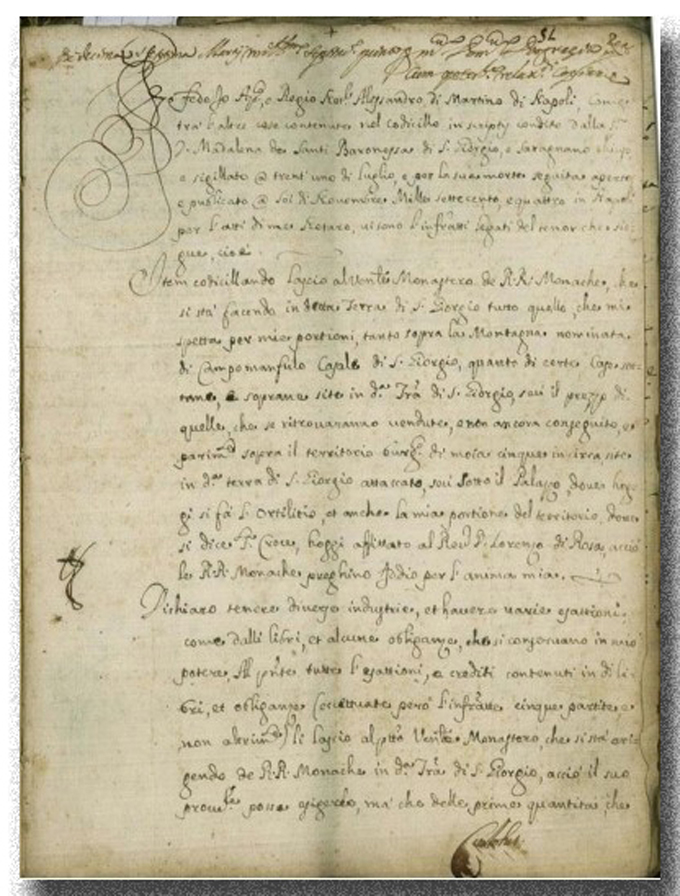 Fede Io Ap.co e Regio Not.r Alessandro di Martino di Napoli, come
tra l'altre cose contenute nel codicillo in scriptis condito dalla
D. Madalena de Santi Baronessa di S. Giorgio, e Saragnano
e sigillato @ trent'uno di Luglio, e per la sua morte seguita aperto
e publicato @ sei di Novembre Mille settecento, e quattro in Napoli
per l'atti di me Notaro, vi sono l'infratti legati del tenor che sie-
gue, cioè
Item codicillando lascio al Ven.le Monastero de RR. Monache, che
si stà facendo in detta Terra di S. Giorgio tutto quello, che mi
spetta per mie portioni, tanto sopra la Montagna nominata
di Campomanfulo Casale di S. Giorgio, quanto di certe Case sot-
tane, e soprane site in d.a Trà di S. Giorgio, seu il prezzo di
quelle, che se ritrovaranno vendute, e non ancora conseguito, e
parim.te sopra il territorio burg. di moia cinque incirca site
in d.a terra di S. Giorgio attaccato, seu sotto il Palazzo, dove hog-
gi si fà l'Ortilitio, et anche la mia portione del territorio, dove
si dice S. Croce, hoggi affittato al Rev. D. Lorenzo di Rosa, acciò
le RR. Monache preghino Iddio per l'anima mia.
Dichiaro tenere diverse industrie, et havere varie esattioni,
come dalli libri, et alcune obliganze, che si conservano in mio
potere, Al pnte tutte l'esattioni, e crediti contenuti in di li-
bri, et obliganze (eccettuate però l'infratte cinque partite, e
non altrim.te) li lascio al ptto Ven.le Monastero, che si stà eri-
gendo de RR. Monache in d.a Trà di S. Giorgio, acciò il suo
proc.re possa esigerle, ma che delle prime quantità, che